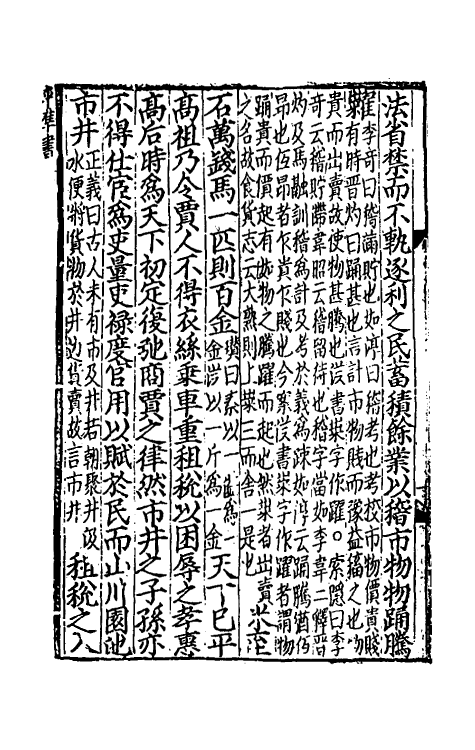 法省禁而不軌逐利之民畜積餘業以稽市物物踊騰
糶李奇曰稽滿貯也如淳曰稽考也考校市物價貴賤
有時晋灼曰踊甚也言計市物賤而豫益稸之也物
貴而出賣故使物甚騰也漢書柒字作躍。索隱曰李
奇云稽貯滯韋昭云稽留待也稽字當如李韋二釋晋
灼及馬融訓稽為計及考於義為踈如淳云踊騰猶伍
昻也伍昻者乍貴乍賤也今案漢書柒字作躍者謂物
踊貴而價起有如物之騰躍而起也然柒者出賣
之名故食貨志云大熟則上柒三而舍一是也
米至
石萬錢馬一匹則百金瓉曰秦以一
金漢以一斤為一金天下已平
髙祖乃令賈人不得衣絲乗車重租稅以困辱之孝惠
髙后時爲天下初定復弛商賈之律然市井之子孫亦
不得仕宦爲吏量吏禄度官用以賦於民而山川園池
市井正義曰古人未有市及井若朝聚井汲
水便將貨物於井边貨賣故言市井租稅之入